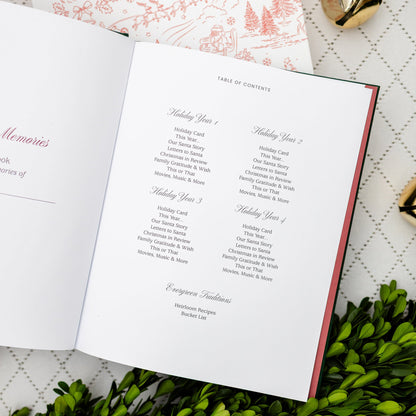 Memories
ook
emories of
TABLE OF CONTENTS
Holiday Year 1
Holiday Card
This Year...
Our Santa Story
Letters to Santa
Christmas in Review
Family Gratitude & Wish
This or That
Movies, Music & More
Holiday Year 2
Holiday Card
This Year...
Our Santa Story
Letters to Santa
Christmas in Review
Family Gratitude & Wish
This or That
Movies, Music & More
Holiday Year 3
Holiday Card
This Year...
Our Santa Story
Letters to Santa
Christmas in Review
Family Gratitude & Wish
This or That
Movies, Music & More
Holiday Year 4
Holiday Card
This Year...
Our Santa Story
Letters to Santa
Christmas in Review
Family Gratitude & Wish
This or That
Movies, Music & More
Evergreen Traditions
Heirloom Recipes
Bucket List